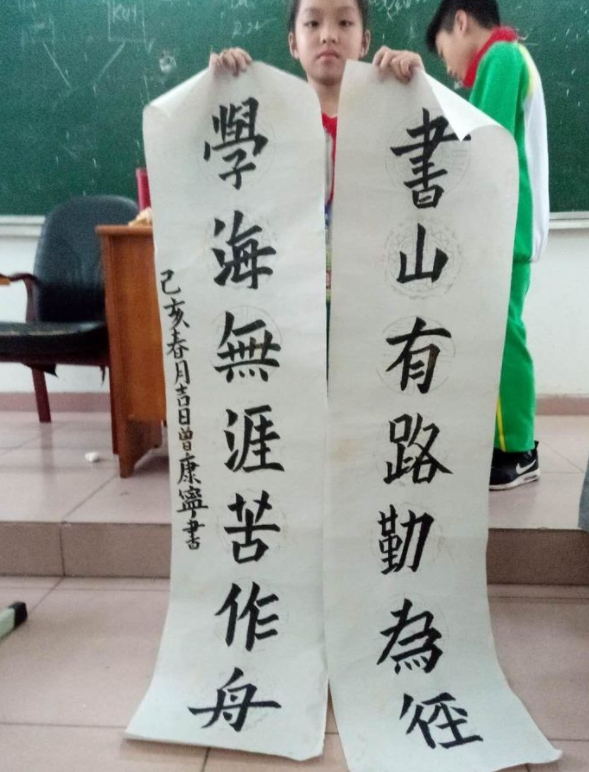 書山有路勤為徑
學海無涯苦作舟
己亥春月吉日曾康寧書